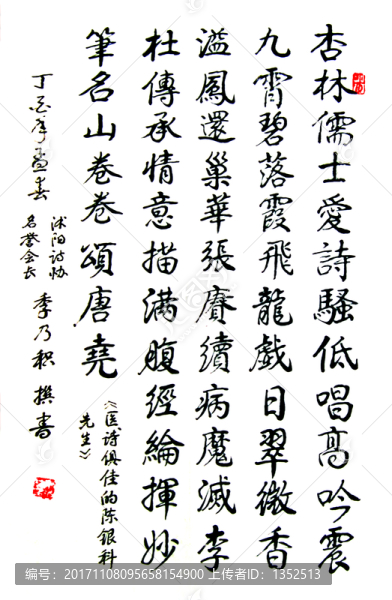 杏林儒士愛詩騷低唱高吟震
九霄碧落霞飛龍戲日翠微香
溢鳳還巢華張賡續病魔滅李
杜傳承情意描满腹經綸揮妙
筆名山卷卷頌唐堯
《医诗俱佳的陈银科
先生》
丁酉年孟春
沭阳诗协
名誉会长
李乃积撰書
编号：20171108095658154900 上传者ID：1352513